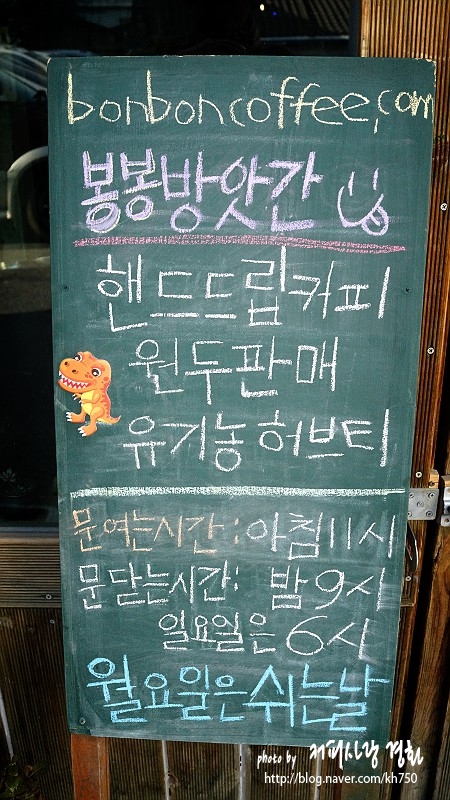 bonboncoffee.com
봉봉방앗간
핸드드립커피
원두판매
유기농허브티
문여는시간: 아침11시
문닫는시간: 밤9시
일요일은 6시
월요일은쉬는날
photo by 커피사랑 경환
http://blog.naver.com/kh750